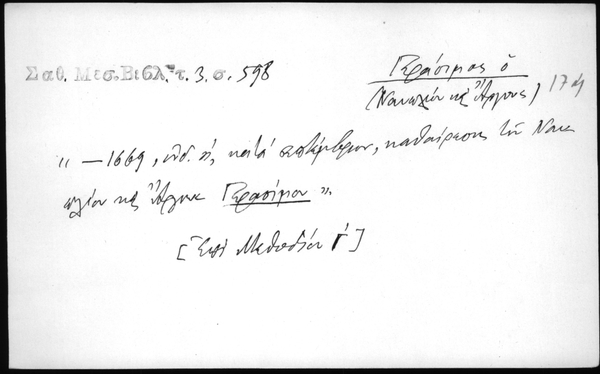 Σαθ. Μεσ. Βιβλ. τ. 3. σ. 598
Γεράσιμος ὁ
(Ναυπλίου κς Ἄργους) 17 η
“ — 1669, ἰνδ. ή, κατὰ σεπτέμβριον, καθαίρεσις τοῦ Ναυ
πλίου κς Ἄργους Γερασίμου ”.
[Ἐπὶ Μεθοδίου Γ′]